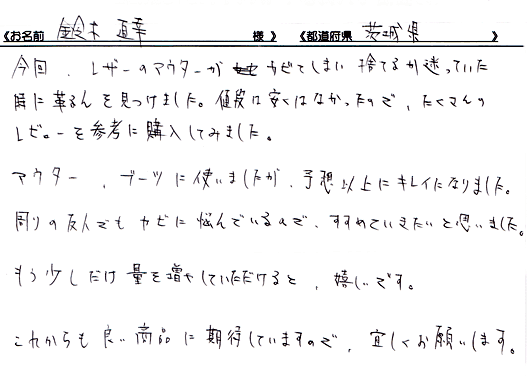 《お名前 鈴木 直幸 様 》 《都道府県 茨城県 》
今回、レザーのアウターが カビてしまい 捨てるか迷っていた
時に革るんを見つけました。値段は安くはなかったので、たくさんの
レビューを参考に購入してみました。
アウター 、ブーツに使いましたが、予想以上にキレイになりました。
周りの友人でも カビに悩んでいるので、すすめていきたいと思いました。
もう少しだけ 量を増やしていただけると、嬉しいです。
これからも 良い商品に期待していますので、宜しくお願いします。